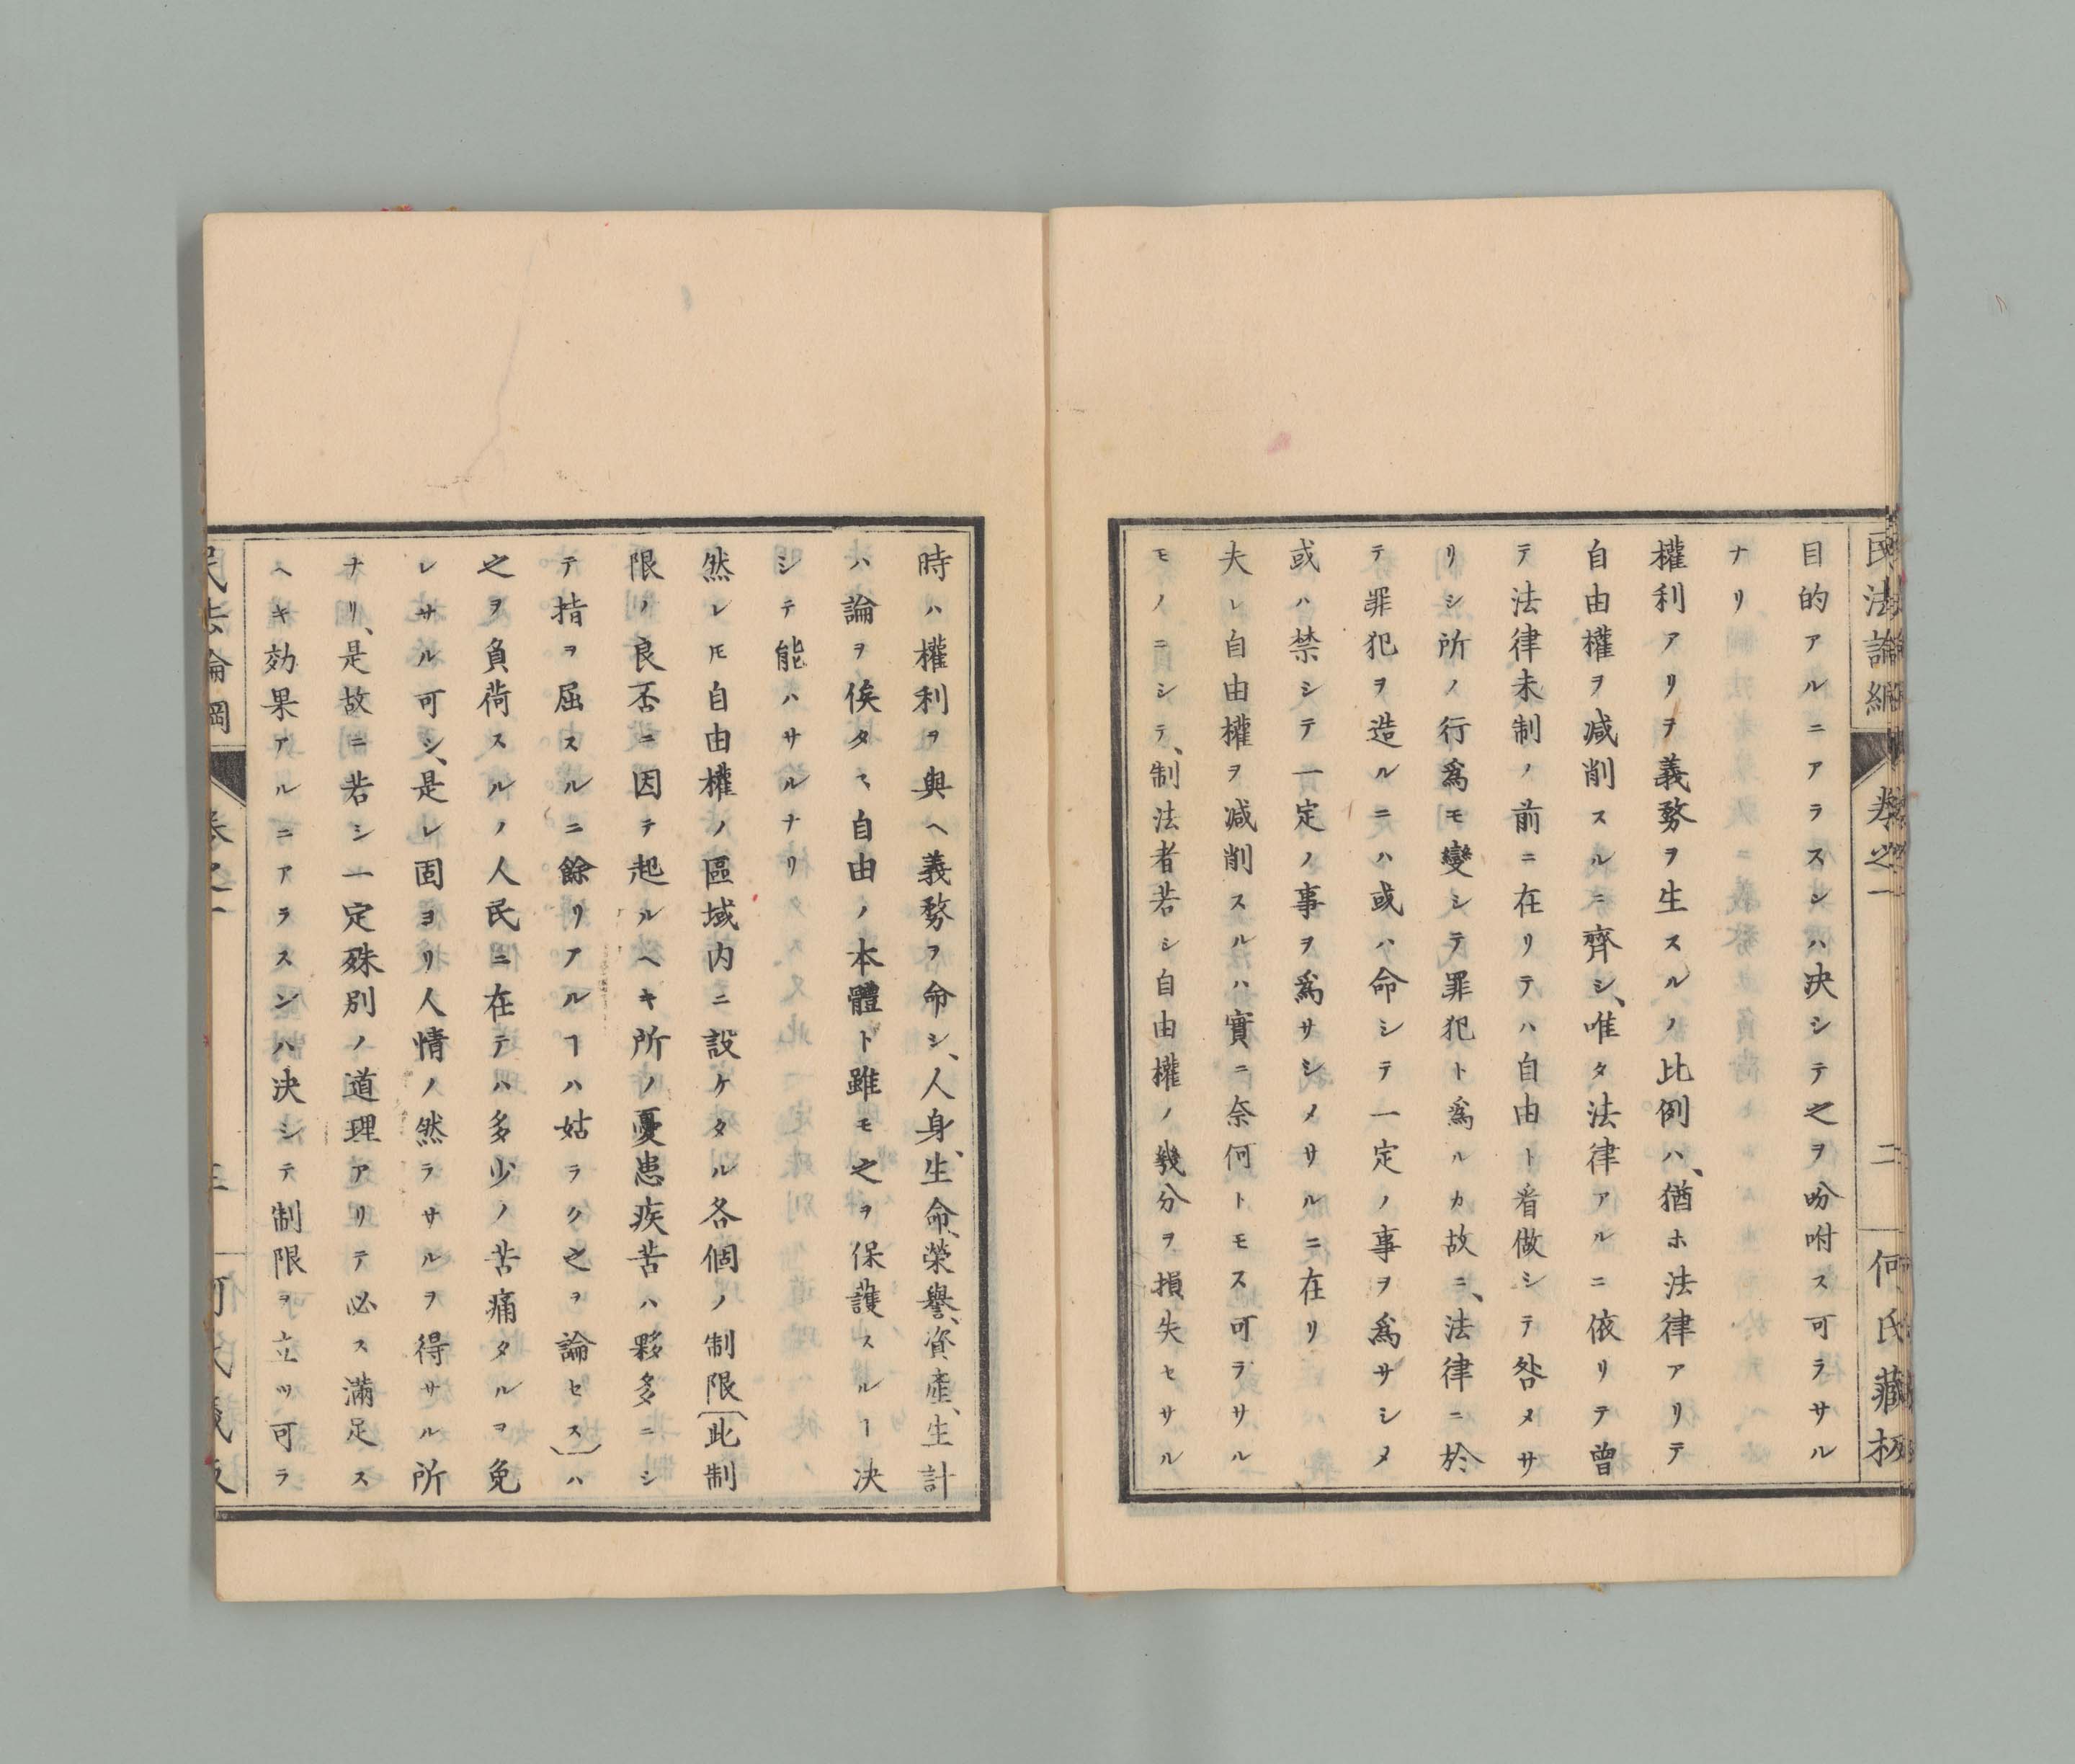 民法論綱 卷之一 二 何氏藏板
目的アルニアラスンハ決シテ之ヲ吩咐ス可ラサル
ナリ
權利アリヲ義務ヲ生スルノ比例ハ、猶ホ法律アリテ
自由權ヲ減削スルニ齊シ、唯タ法律アルニ依リテ曾
テ法律未制ノ前ニ在リテハ自由ト看做シテ咎メサ
リシ所ノ行爲モ變シテ罪犯ト爲ルカ故ニ、法律ニ於
テ罪犯ヲ造ルニハ或ハ命シテ一定ノ事ヲ爲サシメ
或ハ禁シテ一定ノ事ヲ爲サシメサルニ在リ
夫レ自由權ヲ減削スルハ實ニ奈何トモス可ラサル
モノニシテ、制法者若シ自由權ノ幾分ヲ損失セサル
時ハ權利ヲ與ヘ義務ヲ命シ、人身、生命、榮譽、資產、生計
ハ論ヲ俟タヽ自由ノ本體ト雖モ之ヲ保護スルー决
シテ能ハサルナリ
然レ𪜈自由權ノ區域内ニ設ケタル各個ノ制限〔此制
限ノ良否ニ因テ起ルヘキ所ノ憂患疾苦ハ夥多ニシ
テ指ヲ屈スルニ餘リアルヿハ姑ラク之ヲ論セス〕ハ
之ヲ負荷スルノ人民ニ在テハ多少ノ苦痛タルヲ免
レサル可シ、是レ固ヨリ人情ノ然ラサルヲ得サル所
ナリ、是故ニ若シ一定殊別ノ道理アリテ必ス滿足ス
ヘキ効果アルニアラスンハ決シテ制限ヲ立ツ可ラ
民法論綱 卷之一 三 何氏藏板